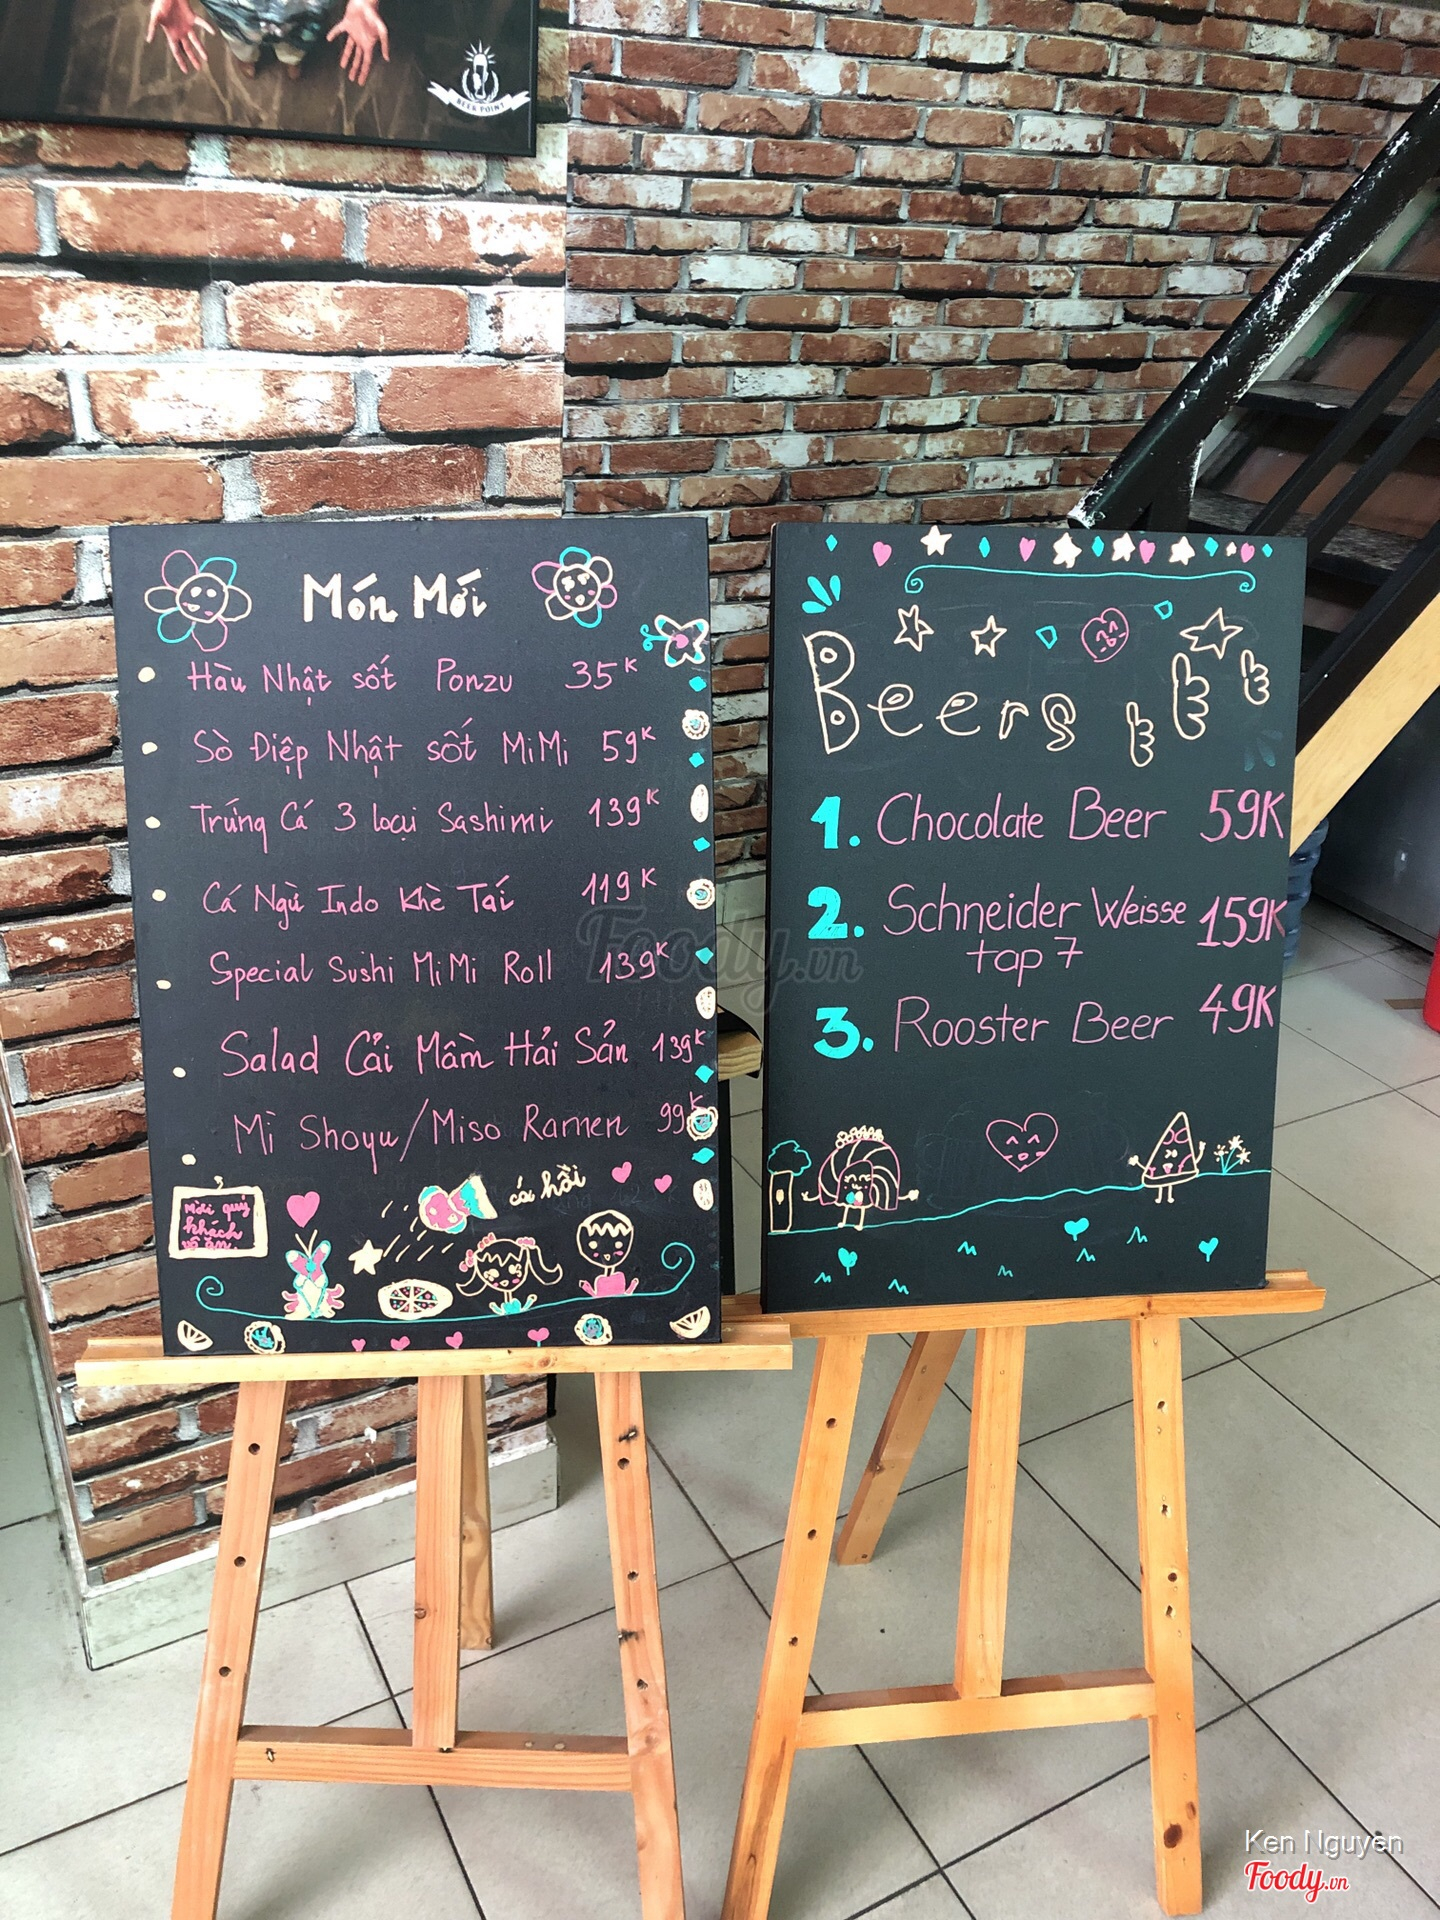 BEER POINT
Món Mới
Hàu Nhật sốt Ponzu 35K
Sò Điệp Nhật sốt MiMi 59K
Trứng Cá 3 loại Sashimi 139K
Cá Ngừ Indo Khè Tái 119K
Special Sushi MiMi Roll 139K
Salad Cải Mầm Hải Sản 139K
Mì Shoyu/Miso Ramen 99K
cá hồi
Mời quý
khách
vô ăn.
Beers
1. Chocolate Beer 59K
2. Schneider Weisse 159K
tap 7
3. Rooster Beer 49K
Foody.vn
Ken Nguyen
Foody.vn